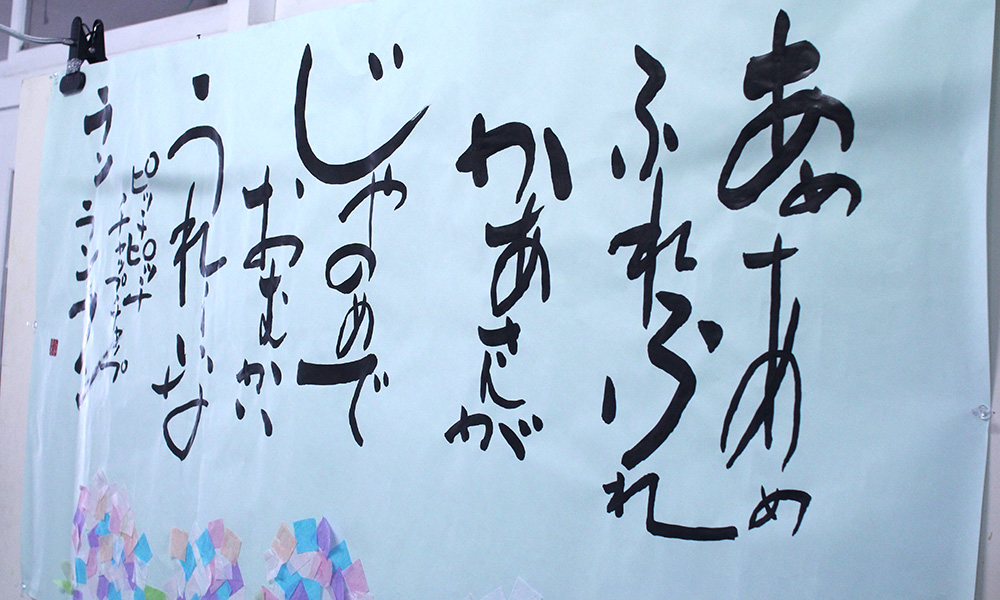 あめあめ
ふれふれ
かあさんが
じゃのめで
おむかい
うれしいな
ピッチピッチ
チャップチャップ
ランランラン